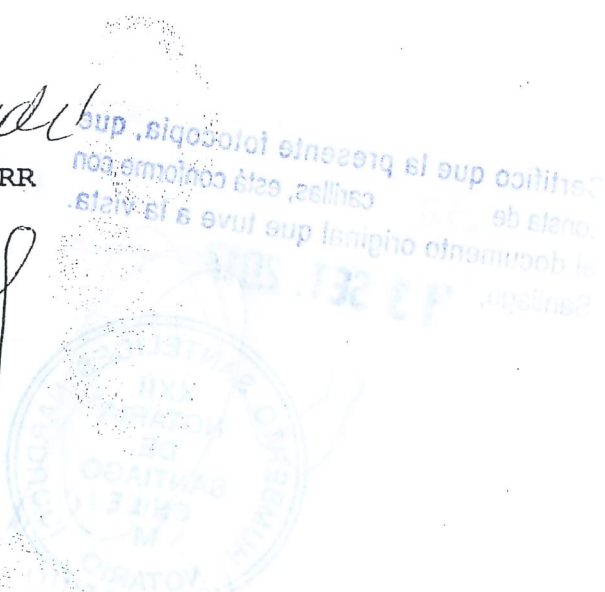 RR
Certifico que la presente fotocopia, que
consta de carillas, está conforme con
el documento original que tuve a la vista.
Santiago, 13 SET.
HUMBERTO SANTELICES NARDUCCI
XXII
NOTARIA
DE
SANTIAGO
CHILE
M
NOTARIO